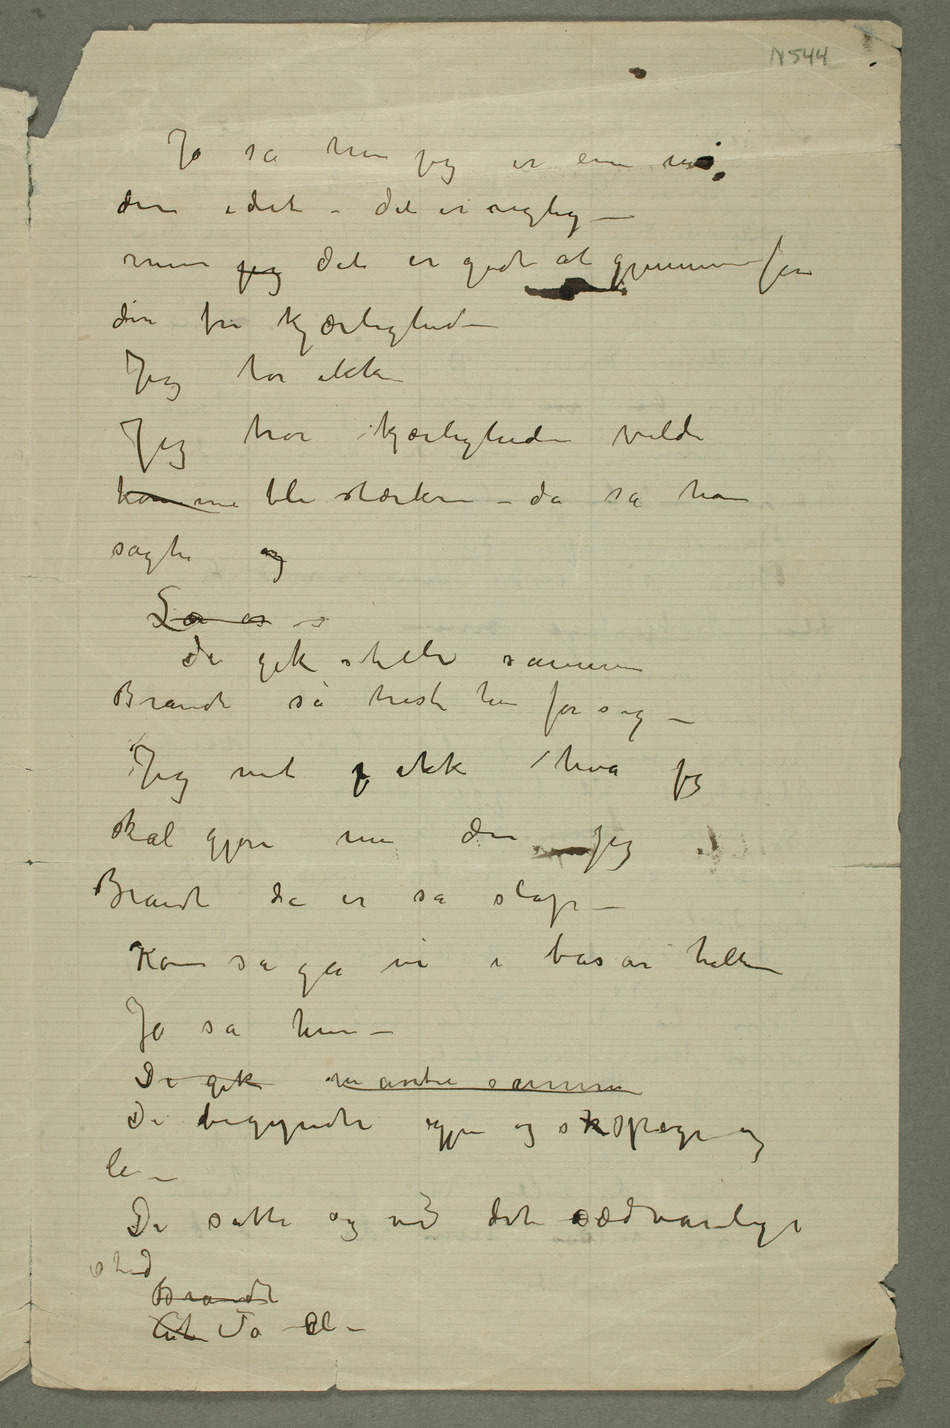 N 544
Ja sa hun jeg er enig med
dem i det – det er rigtig –
men jeg det er godt at gjennemføre
den fri kjærlighed –
Jeg tror ikke
Jeg tror kjærligheden vilde
komme bli stærkere – da sa han
sagte og
La os s
De gik stille sammen
Brandt så trist hen for sig –
Jeg vet j ikke hva jeg
skal gjøre med den jeg
Brandt de er så slap –
Kom så gå vi i basarhallen
Ja sa hun –
De gik nu atter sammen
De begyndte igjen og sk spøge og
le –
De satte sig ved det sædvanlige
sted
Brandt
To øl –